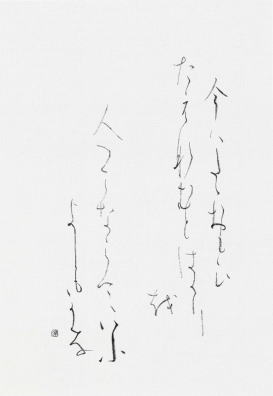 今はたゝおもひ
たえなむとはかり
越
人つてならていふ
よしもかな